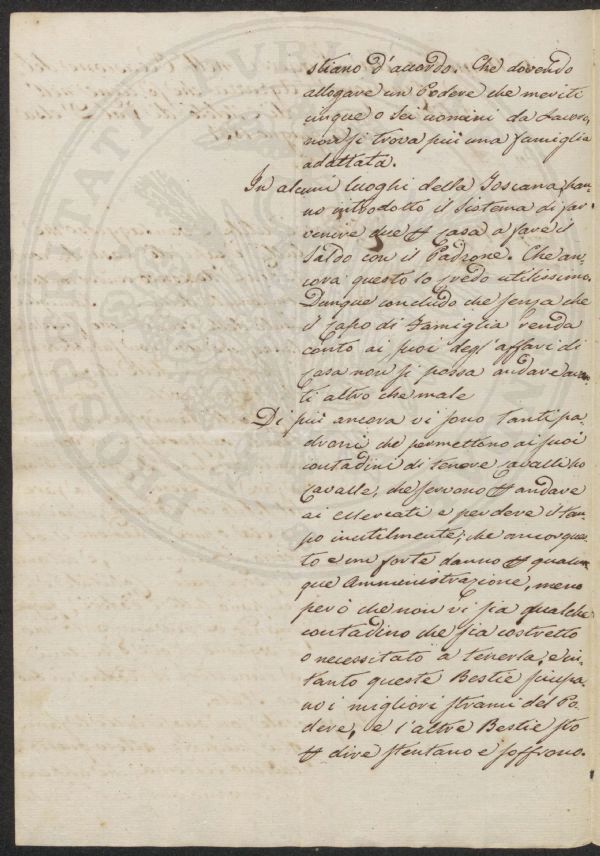 stiano d'accordo. Che dovendo
allogare un Podere che meriti
cinque o sei uomini da Lavoro,
non si trova più una famiglia
adattata.
In alcuni luoghi della Toscana han-
no introdotto il sistema di far
venire due casa a fare il
Saldo con il Padrone. Che an-
cora questo lo credo utilissimo.
Dunque concludo che senza che
il capo di Famiglia renda
conto ai suoi degl' affari di
casa non si possa andare avan-
ti altro che male
Di più ancora vi sono tanti pa-
droni che permettono ai suoi
contadini di tenere cavalli, o
cavalle, che servono andare
ai Mercati e perdere il tem-
po inutilmente; che ancor ques-
to e un forte danno qualun-
que Amministrazione, meno
però che non vi sia qualche
contadino che sia costretto
o necessitato a tenerla, e in-
tanto queste Bestie sciupa-
no i migliori strami del Po-
dere, e l'altre Bestie sto
dire stentano e soffrono.
PROSPERITATI PVBL